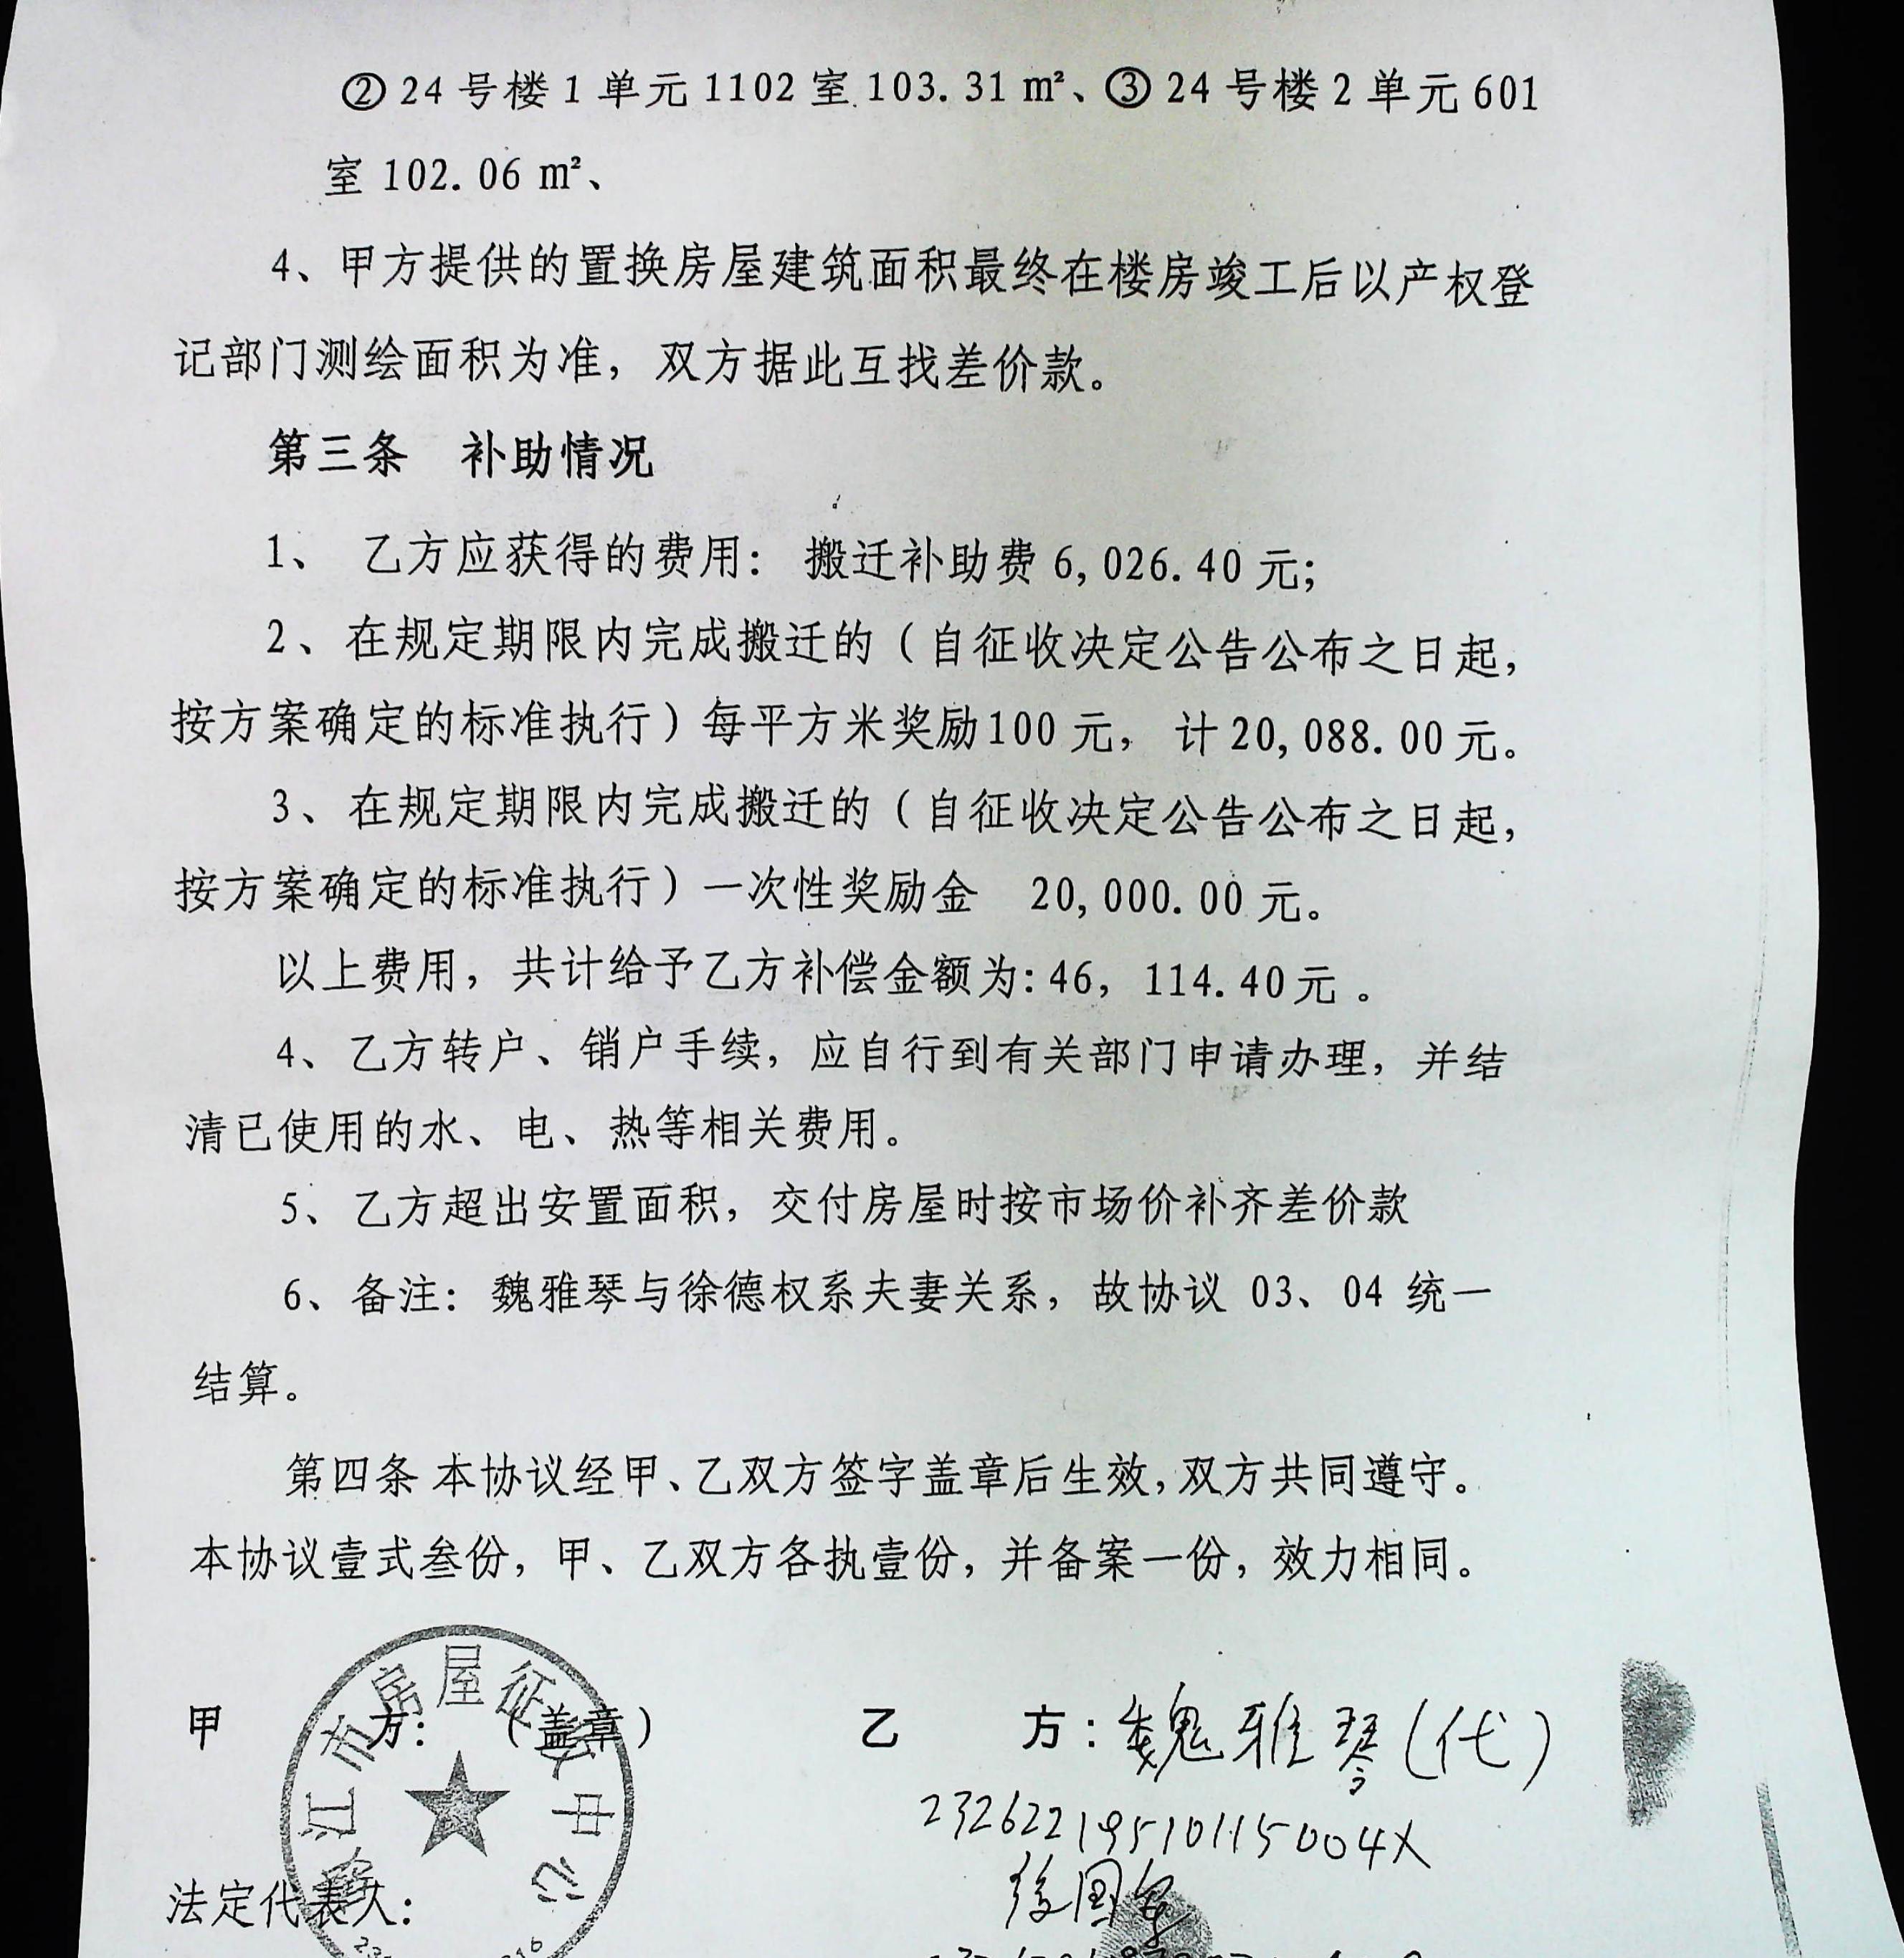 ②24号楼1单元1102室103.31㎡、③24号楼2单元601
室102.06㎡、
4、甲方提供的置换房屋建筑面积最终在楼房竣工后以产权登
记部门测绘面积为准，双方据此互找差价款。
第三条 补助情况
1、 乙方应获得的费用： 搬迁补助费6,026.40元；
2、在规定期限内完成搬迁的（自征收决定公告公布之日起，
按方案确定的标准执行）每平方米奖励100元， 计20,088.00元。
3、在规定期限内完成搬迁的（自征收决定公告公布之日起，
按方案确定的标准执行）一次性奖励金 20,000.00元。
以上费用，共计给予乙方补偿金额为：46，114.40元 。
4、乙方转户、销户手续，应自行到有关部门申请办理，并结
清已使用的水、电、热等相关费用。
5、乙方超出安置面积，交付房屋时按市场价补齐差价款
6、备注：魏雅琴与徐德权系夫妻关系，故协议 03、04 统一
结算。
第四条 本协议经甲、乙双方签字盖章后生效，双方共同遵守。
本协议壹式叁份，甲、乙双方各执壹份，并备案一份，效力相同。
甲 方： （盖章） 乙 方：魏雅琴（代）
江市房屋征收中心
23262219510115004X
法定代表人：